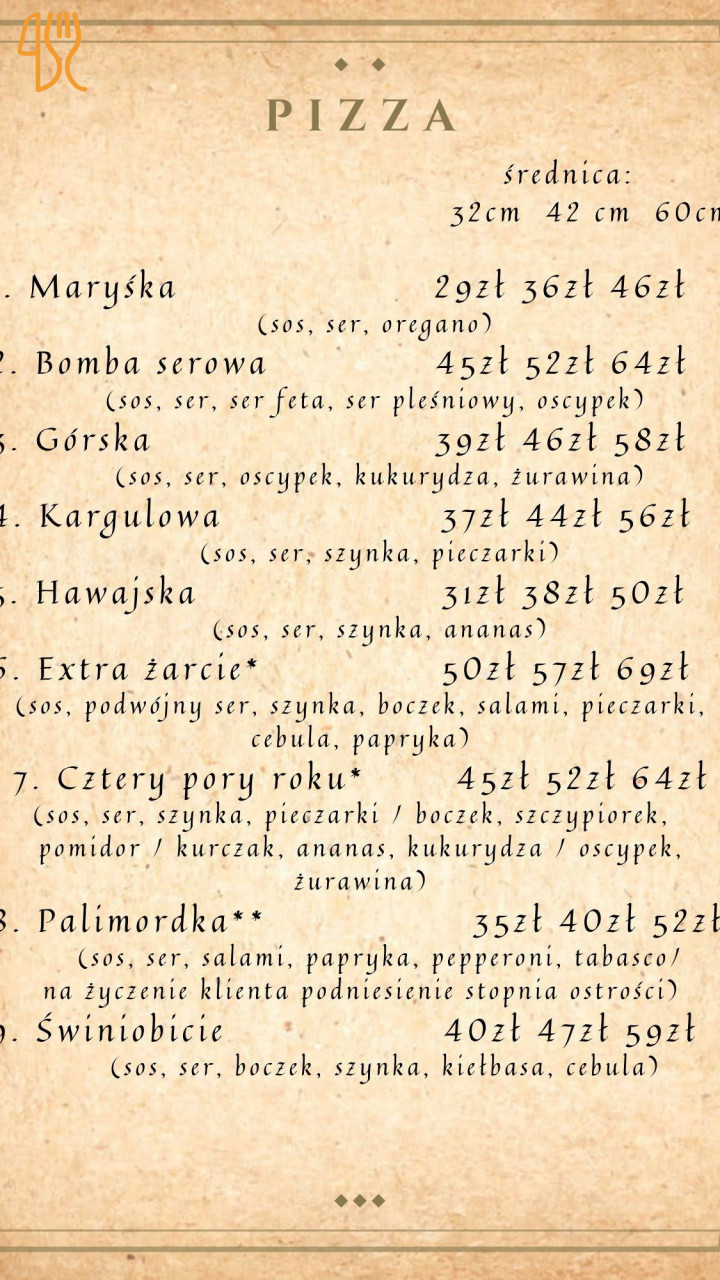 PIZZA
średnica:
32cm 42 cm 60cm
. Maryśka 29zł 36zł 46zł
(sos, ser, oregano)
2. Bomba serowa 45zł 52zł 64zł
(sos, ser, ser feta, ser pleśniowy, oscypek)
3. Górska 39zł 46zł 58zł
(sos, ser, oscypek, kukurydza, żurawina)
4. Kargulowa 37zł 44zł 56zł
(sos, ser, szynka, pieczarki)
5. Hawajska 31zł 38zł 50zł
(sos, ser, szynka, ananas)
6. Extra żarcie* 50zł 57zł 69zł
(sos, podwójny ser, szynka, boczek, salami, pieczarki,
cebula, papryka)
7. Cztery pory roku* 45zł 52zł 64zł
(sos, ser, szynka, pieczarki / boczek, szczypiorek,
pomidor / kurczak, ananas, kukurydza / oscypek,
żurawina)
8. Palimordka** 35zł 40zł 52zł
(sos, ser, salami, papryka, pepperoni, tabasco/
na życzenie klienta podniesienie stopnia ostrości)
9. Świniobicie 40zł 47zł 59zł
(sos, ser, boczek, szynka, kiełbasa, cebula)